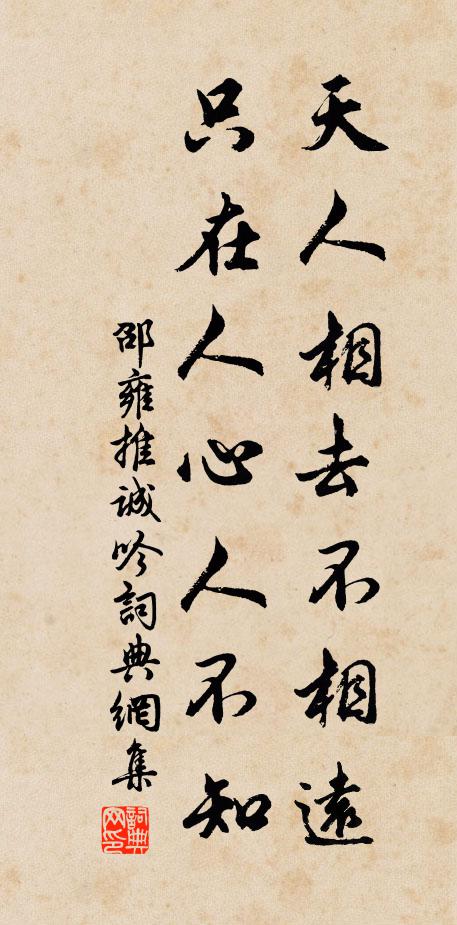 天人相去不相遠
只在人心人不知
邵雍推誠吟詞典網集
詞典網印